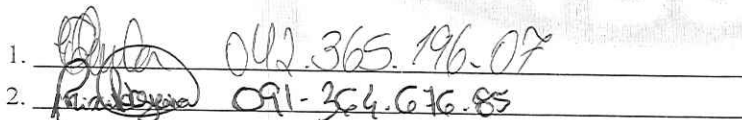 1. 042.365.196-07
2. 091-364.676.85